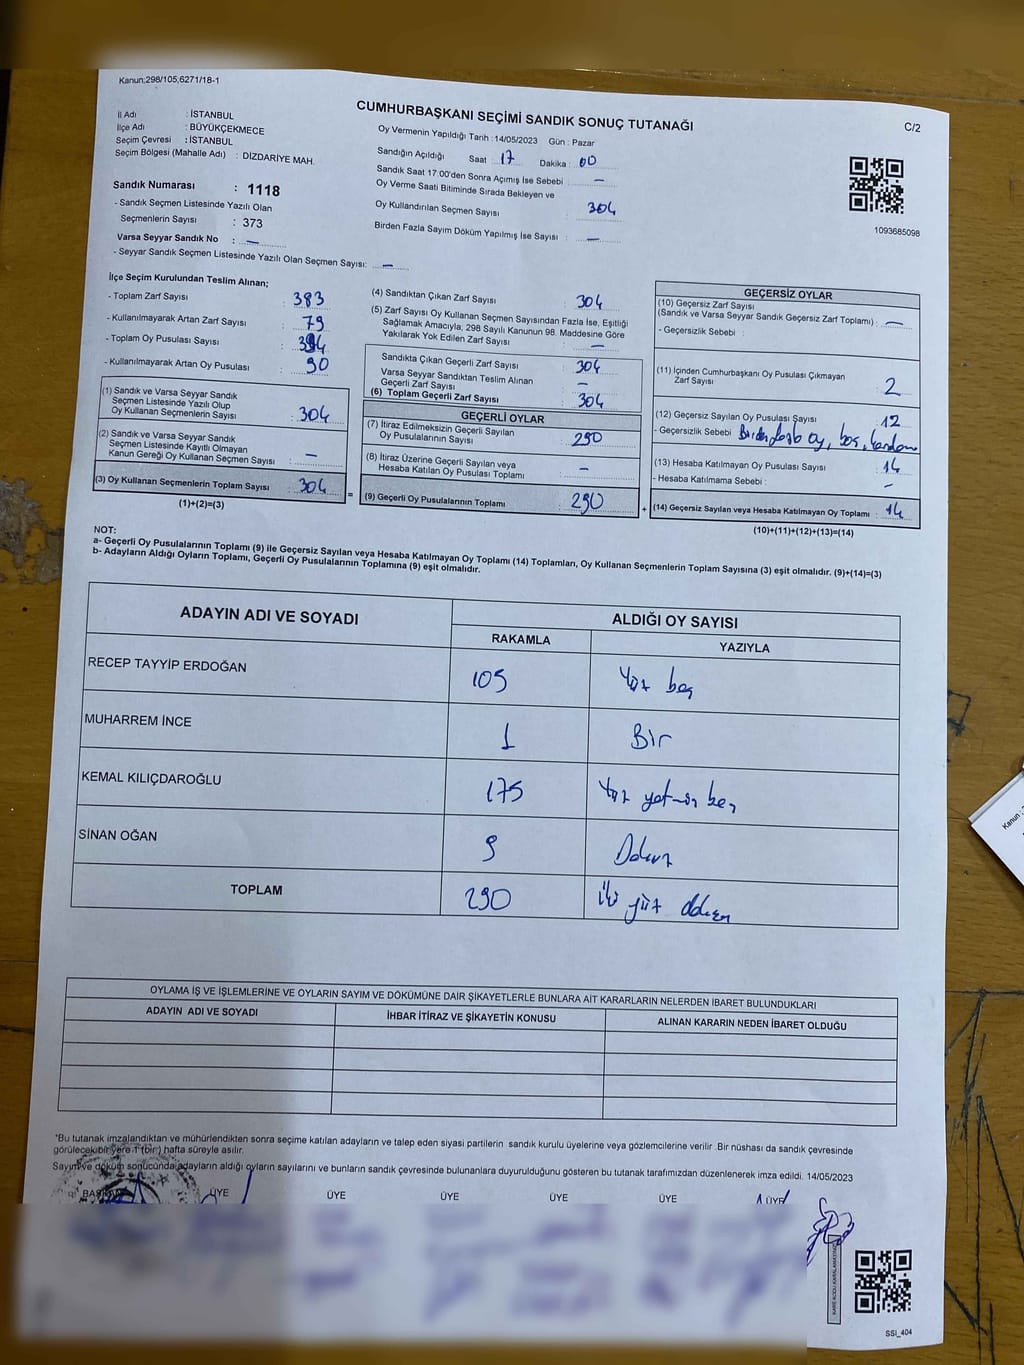 Kanun;298/105,6271/18-1
CUMHURBAŞKANI SEÇİMİ SANDIK SONUÇ TUTANAĞI
C/2
İl Adı : İSTANBUL
İlçe Adı : BÜYÜKÇEKMECE
Seçim Çevresi : İSTANBUL
Seçim Bölgesi (Mahalle Adı) : DİZDARİYE MAH.
Sandık Numarası : 1118
- Sandık Seçmen Listesinde Yazılı Olan
Seçmenlerin Sayısı : 373
Varsa Seyyar Sandık No : —
- Seyyar Sandık Seçmen Listesinde Yazılı Olan Seçmen Sayısı: —
Oy Vermenin Yapıldığı Tarih :14/05/2023 Gün : Pazar
Sandığın Açıldığı Saat 17 Dakika : 00
Sandık Saat 17:00'den Sonra Açımış İse Sebebi : —
Oy Verme Saati Bitiminde Sırada Bekleyen ve
Oy Kullandırılan Seçmen Sayısı : 304
Birden Fazla Sayım Döküm Yapılmış İse Sayısı : —
1093685098
İlçe Seçim Kurulundan Teslim Alınan;
- Toplam Zarf Sayısı : 383
- Kullanılmayarak Artan Zarf Sayısı : 79
- Toplam Oy Pusulası Sayısı :
- Kullanılmayarak Artan Oy Pusulası : 90
(1) Sandık ve Varsa Seyyar Sandık
Seçmen Listesinde Yazılı Olup
Oy Kullanan Seçmenlerin Sayısı : 304
(2) Sandık ve Varsa Seyyar Sandık
Seçmen Listesinde Kayıtlı Olmayan
Kanun Gereği Oy Kullanan Seçmen Sayısı : —
(3) Oy Kullanan Seçmenlerin Toplam Sayısı : 304
(1)+(2)=(3)
=
(4) Sandıktan Çıkan Zarf Sayısı : 304
(5) Zarf Sayısı Oy Kullanan Seçmen Sayısından Fazla İse, Eşitliği
Sağlamak Amacıyla, 298 Sayılı Kanunun 98. Maddesine Göre
Yakılarak Yok Edilen Zarf Sayısı : —
Sandıkta Çıkan Geçerli Zarf Sayısı : 304
Varsa Seyyar Sandıktan Teslim Alınan
Geçerli Zarf Sayısı : —
(6) Toplam Geçerli Zarf Sayısı : 304
GEÇERLİ OYLAR
(7) İtiraz Edilmeksizin Geçerli Sayılan
Oy Pusulalarının Sayısı : 290
(8) İtiraz Üzerine Geçerli Sayılan veya
Hesaba Katılan Oy Pusulası Toplamı : —
(9) Geçerli Oy Pusulalarının Toplamı : 290
+
GEÇERSİZ OYLAR
(10) Geçersiz Zarf Sayısı
(Sandık ve Varsa Seyyar Sandık Geçersiz Zarf Toplamı) : —
- Geçersizlik Sebebi :
(11) İçinden Cumhurbaşkanı Oy Pusulası Çıkmayan
Zarf Sayısı : 2
(12) Geçersiz Sayılan Oy Pusulası Sayısı : 12
- Geçersizlik Sebebi : Birden fazla oy, boş,
(13) Hesaba Katılmayan Oy Pusulası Sayısı : 14
- Hesaba Katılmama Sebebi : —
(14) Geçersiz Sayılan veya Hesaba Katılmayan Oy Toplamı : 14
(10)+(11)+(12)+(13)=(14)
NOT:
a- Geçerli Oy Pusulalarının Toplamı (9) ile Geçersiz Sayılan veya Hesaba Katılmayan Oy Toplamı (14) Toplamları, Oy Kullanan Seçmenlerin Toplam Sayısına (3) eşit olmalıdır. (9)+(14)=(3)
b- Adayların Aldığı Oyların Toplamı, Geçerli Oy Pusulalarının Toplamına (9) eşit olmalıdır.
ADAYIN ADI VE SOYADI
ALDIĞI OY SAYISI
RAKAMLA YAZIYLA
RECEP TAYYİP ERDOĞAN 105 Yüz beş
MUHARREM İNCE 1 Bir
KEMAL KILIÇDAROĞLU 175 Yüz yetmiş beş
SİNAN OĞAN 9 Dokuz
TOPLAM 290 İki yüz doksan
OYLAMA İŞ VE İŞLEMLERİNE VE OYLARIN SAYIM VE DÖKÜMÜNE DAİR ŞİKAYETLERLE BUNLARA AİT KARARLARIN NELERDEN İBARET BULUNDUKLARI
ADAYIN ADI VE SOYADI İHBAR İTİRAZ VE ŞİKAYETİN KONUSU ALINAN KARARIN NEDEN İBARET OLDUĞU
*Bu tutanak imzalandıktan ve mühürlendikten sonra seçime katılan adayların ve talep eden siyasi partilerin sandık kurulu üyelerine veya gözlemcilerine verilir. Bir nüshası da sandık çevresinde
görülecek bir yere 1 (bir) hafta süreyle asılır.
Sayım ve döküm sonucunda adayların aldığı oyların sayılarını ve bunların sandık çevresinde bulunanlara duyurulduğunu gösteren bu tutanak tarafımızdan düzenlenerek imza edildi. 14/05/2023
BAŞKAN ÜYE ÜYE ÜYE ÜYE ÜYE ÜYE
SSI_404
Kanun